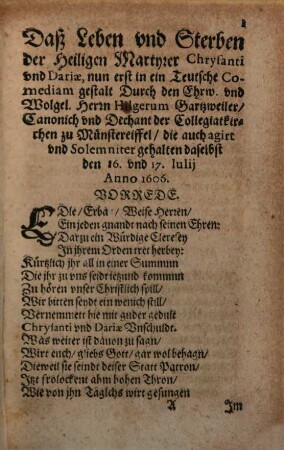 Daß Leben vnd Sterben
der Heiligen Martyrer Chrysanti
vnd Dariæ, nun erst in ein Teutsche Co-
mediam gestalt Durch den Ehrw. vnd
Wolgel. Herrn Hilgerum Gartzweiler/
Canonich vnd Dechant der Collegiatkir-
chen zu Münstereiffel/ die auch agirt
vnd Solemniter gehalten daselbst
den 16. vnd 17. Iulij
Anno 1606.
VORREDE.
EDle/ Erba:/ Weise Herren/
Ein jeden gnandt nach seinen Ehren:
Darzu ein Würdige Cleresey
In ihrem Orden trei herbey:
Kürtzlich jhr all in einer Summm
Die jhr zu vns seidt kommen
Zu hören vnser Christlich spill/
Wir bitten seydt ein wenich still/
Vernemmett hie mit guder gedult
Chrysanti vnd Dariæ Vnschuldt.
Was weiter ist dauon zu sagn/
Wirt euch/ g'iebs Gott/ gar wol behagn/
Dieweil sie seindt deiser Statt Patron/
Itzt frolockent ahm hohen Thron/
Wie von jhn Täglchs wirt gesungen
A Im